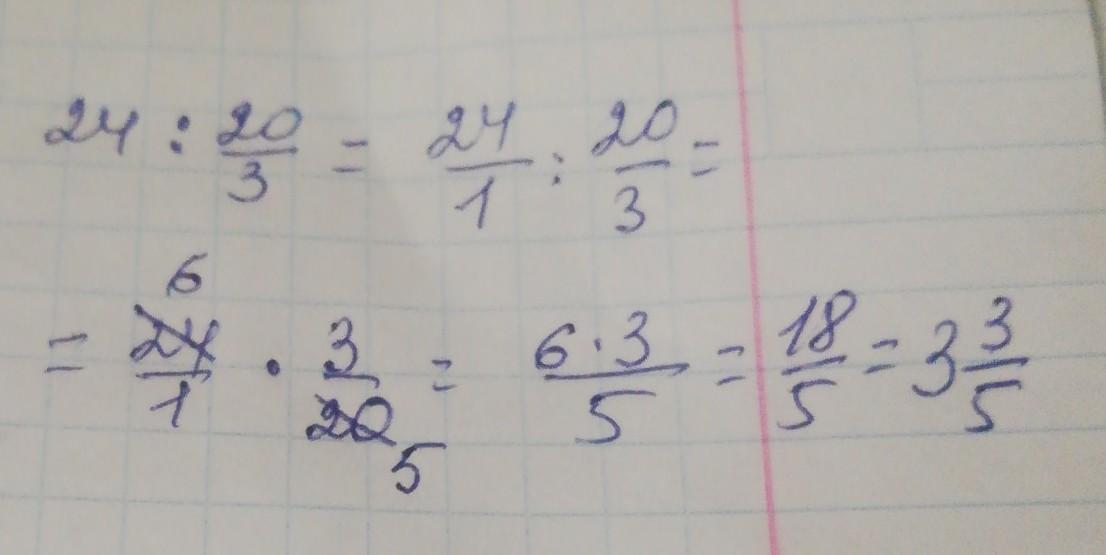 24 : 20/3 = 24/1 : 20/3 =
= 24/1 6 · 3/20 5 = 6·3/5 = 18/5 = 3 3/5